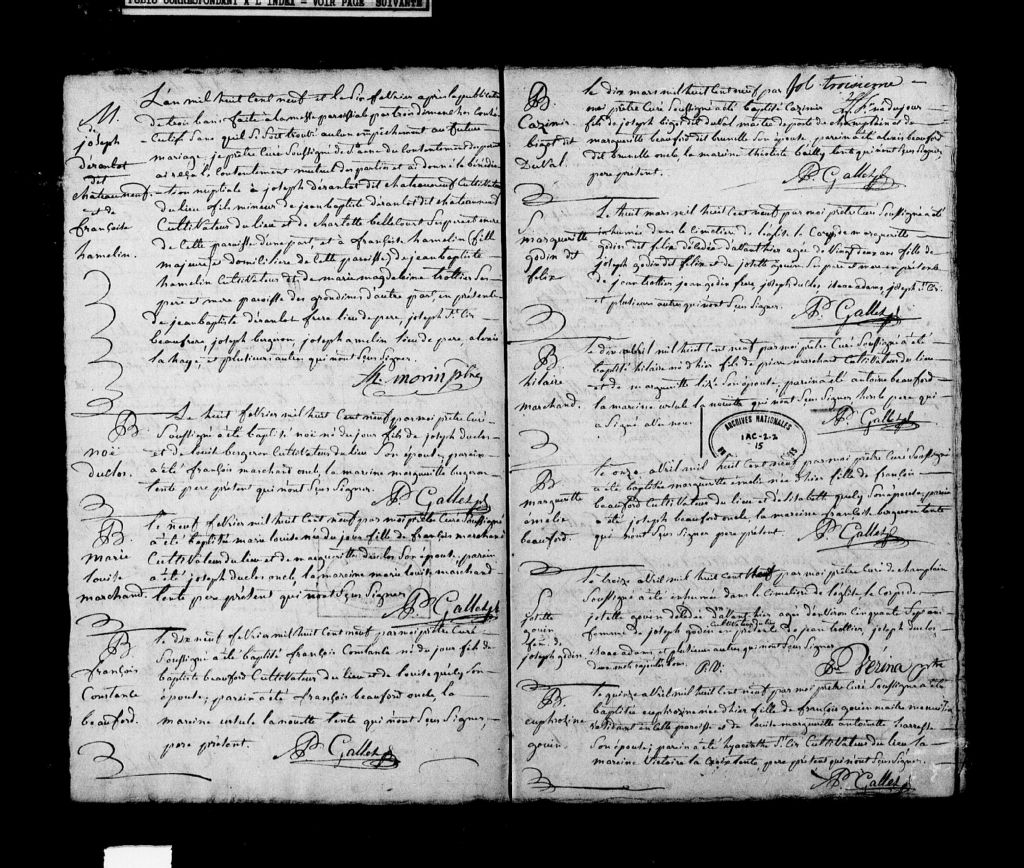 FOLIO CORRESPONDANT A L'INDEX - VOIR PAGE SUIVANTE
M.
de
joseph
déranlot
dit
chateauneuf
et de
françoise
hamelin.
L'an mil huit cent neuf et le Six fevrier après la publication
de trois bans faite a la messe paroissiale par trois dimanches
Sans qu'il se soit trouvé aucun empêchement au futur
mariage, je prêtre Curé Soussigné de Ste anne du Consentement
ai reçu le Consentement mutuel des parties et ai donné la bénédic-
-tion nuptiale à joseph déranlot dit chateauneuf Cultivateur
du lieu fils mineur de jean baptiste déranlot dit chateauneuf
Cultivateur du lieu et de charlotte bellecourt Ses pere et mere
de cette paroisse d'une part, et à françoise hamelin (fille
majeure et domiciliée de cette paroisse) de jean baptiste
hamelin Cultivateur et de marie magdeleine trottier Ses
pere et mere paroisse des grondines d'autre part, en présence
de jean baptiste déranlot frere lieu de pere, joseph St. Cir
beaufrere, joseph bergeron, joseph amelin lieu de pere, alexis
la haye, et plusieurs autres qui n'ont Sçus Signer.
morin ptre
B.
noë
duclos.
Le huit fevrier mil huit Cent neuf par moi prêtre Curé
Soussigné a été baptisé noë né du jour fils de joseph duclos
et de louise bergeron Cultivateur du lieu Son épouse, parein
a été françois marchand oncle, la mareine marguerite bergeron
tente pere présent qui n'ont Sçus Signer.
P. Gallet
B.
marie
louise
marchand
le neuf fevrier mil huit Cent neuf par moi prêtre Curé Soussigné
a été baptisée marie louise née du jour fille de françois marchand
Cultivateur du lieu et de marguerite duclos Son épouse, parein
a été joseph duclos oncle, la mareine marie louise marchand
tente pere présent qui n'ont Sçus Signer.
P. Gallet
B
françois
Constante
beauford.
le dix neuf fevrier mil huit Cent neuf par moi prêtre Curé
Soussigné a été baptisé françois Constante né du jour fils de
baptiste beauford Cultivateur du lieu et de louise quesy Son
épouse; parein a été françois beauford oncle, la
mareine ursule lanouette tente qui n'ont Sçus Signer,
pere présent.
P. Gallet
fol. troisieme
B.
Cazimir
bigot dit
Duval
le dix mars mil huit Cent neuf par
moi prêtre Curé Soussigné a été baptisé Cazimir né du jour
fils de joseph bigot dit duval maitre de poste de champlain et de
marguerite beauford dit brunelle Son épouse, parein a été alexis beauford
dit brunelle oncle, la mareine théotiste bailly tente qui n'ont Sçus Signer
pere présent.
P. Gallet
S
marguerite
godin dit
felix
le huit mars mil huit Cent neuf par moi prêtre Curé Soussigné a été
inhumée dans le Cimetiere de l'église le Corps de marguerite
godin dit felix décédée d'avant hier agée de vingt deux ans fille de
joseph godin dit felix et de josette gouin Ses pere et mere en présence
de jean trottier, jean godin frere, joseph duclos, isaac adams, joseph St. Cir
et plusieurs autres qui n'ont Sçus Signer.
P. Gallet
B.
hilaire
marchand.
le dix avril mil huit Cent neuf par moi prêtre Curé Soussigné a été
baptisé hilaire né d'hier fils de pierre marchand Cultivateur du lieu
et de marguerite Son épouse, parein a été antoine beauford
la mareine ursule la nouette qui n'ont Sçus Signer hors le pere qui
a Signé avec nous.
P. Gallet
ARCHIVES NATIONALES
1AC-2-2
15
B.
marguerite
amelie
beauford.
le onze avril mil huit Cent neuf par moi prêtre Curé Soussigné
a été baptisée marguerite amelie née d'hier fille de françois
beauford Cultivateur du lieu et d'elizabeth quesy Son épouse, parein
a été joseph beauford oncle, la mareine françoise tente
qui n'ont Sçus Signer pere présent.
P. Gallet
S
josette
gouin
fem. de
joseph godin
le treize avril mil huit Cent neuf par moi prêtre Curé de champlain
Soussigné a été inhumée dans le Cimetiere de l'église le Corps de
josette gouin décédée d'avant hier agée d'environ Cinquante Sept ans
femme de joseph godin Cultivateur du lieu en présence de jean trottier, joseph duclos
isaac adams, et plusieurs autres qui n'ont Sçus Signer
deux mots rajoutés bon.
P. V.
Vézina ptre
B.
euphrozine
gouin.
le quinze avril mil huit Cent neuf par moi prêtre Curé Soussigné a été
baptisée euphrozine née d'hier fille de françois gouin maitre menuisier
résidant en cette paroisse et de louise marguerite antoinette
Son épouse; parein a été hyacinthe St. Cir Cultivateur du lieu la
mareine Victoire la Croix tente, pere présent qui n'ont Sçus Signer.
P. Gallet